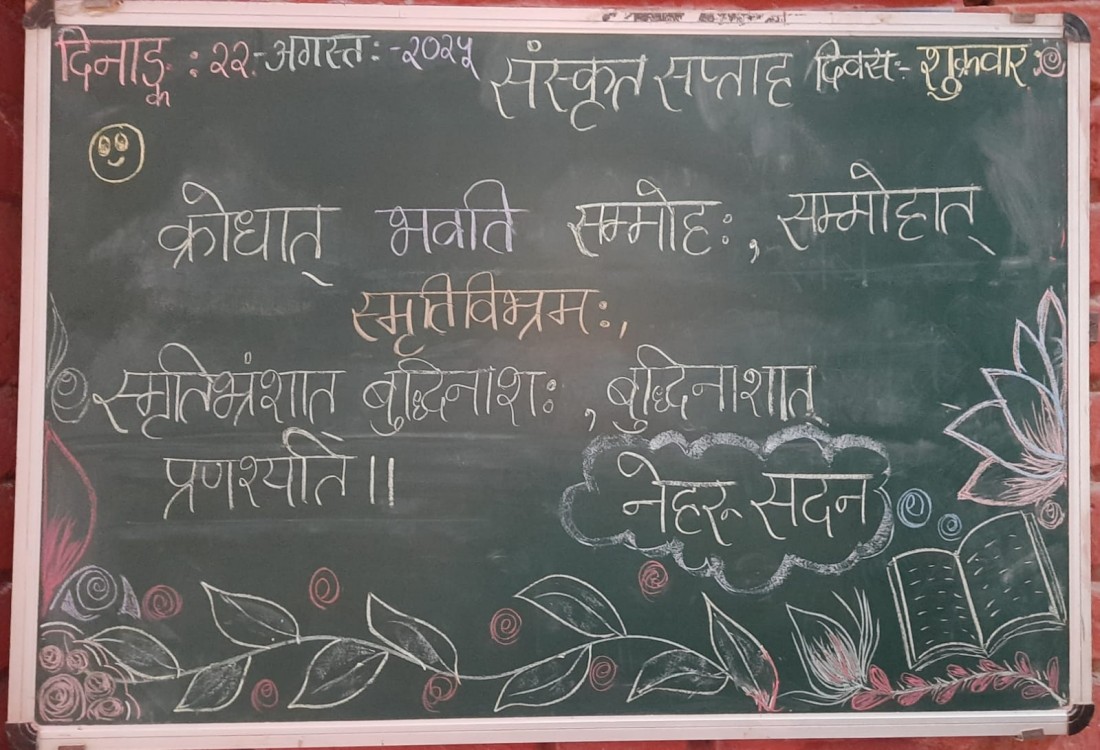 दिनाङ्क : २२-अगस्तः-२०२५ संस्कृत सप्ताह दिवसः- शुक्रवारः
क्रोधात् भवति सम्मोहः, सम्मोहात्
स्मृतिविभ्रमः,
स्मृतिभ्रंशात बुद्धिनाशः , बुद्धिनाशात्
प्रणश्यति॥
नेहरू सदन